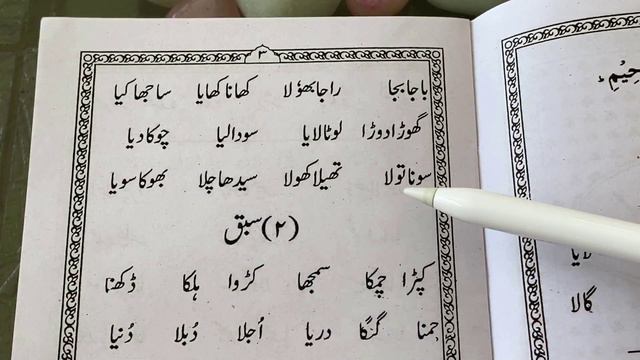 ۳
باجا بجا راجا بھولا کھانا کھایا ساجھا کیا
گھوڑا دوڑا لوٹا لایا سودا لیا چوکا دیا
سونا تولا تھیلا کھولا سیدھا چلا بھوکا سویا
سبق (۲)
کپڑا چمکا سمجھا کڑوا ہلکا ڈھکنا
جمنا گنگا دریا اُجلا دُبلا دُنیا
حِیْمِ
لایا
گالا